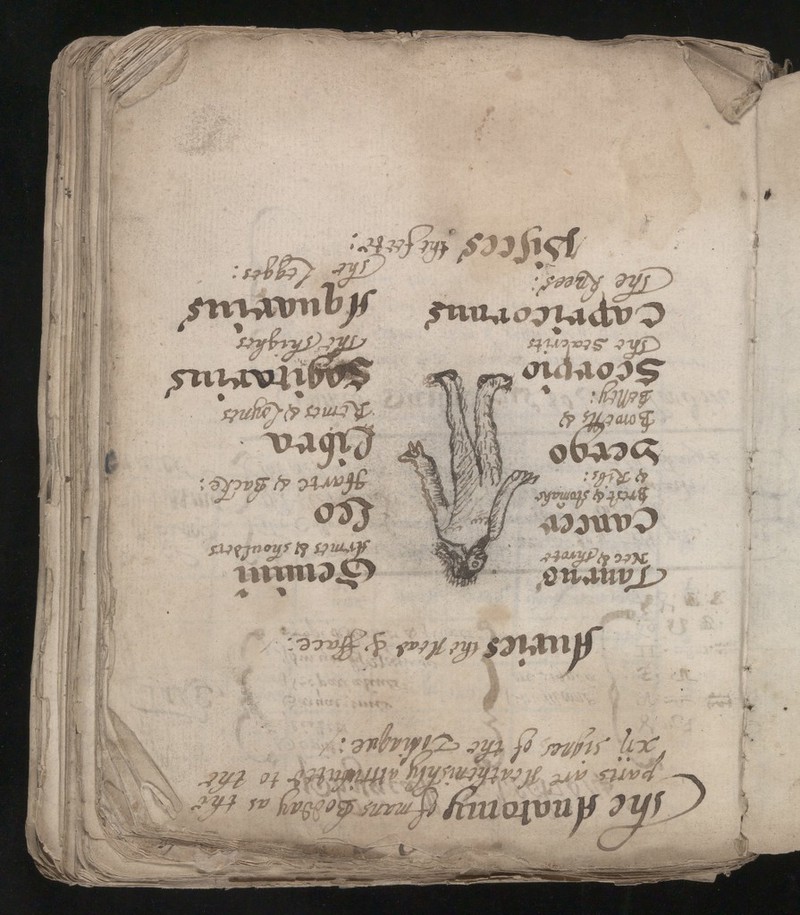 The Anatomy of mans Bodday as the
parts are Heathenishly attributed to the
xij signes of the Zodiaque:
Auries the Head & Face:
Taurus
Nec & throte
Gemini
Armes & shoulders
Cancer
Brest & stomake
& Ribs:
Leo
Harte & Backe:
Vergo
Bowells &
Belley:
Libra
Remes & Loynes
Scorpio
The Seacrits
Sagitarius
The thighes
Capricornus
The knees:
Aquarius
The Legges:
Pisces the feete: